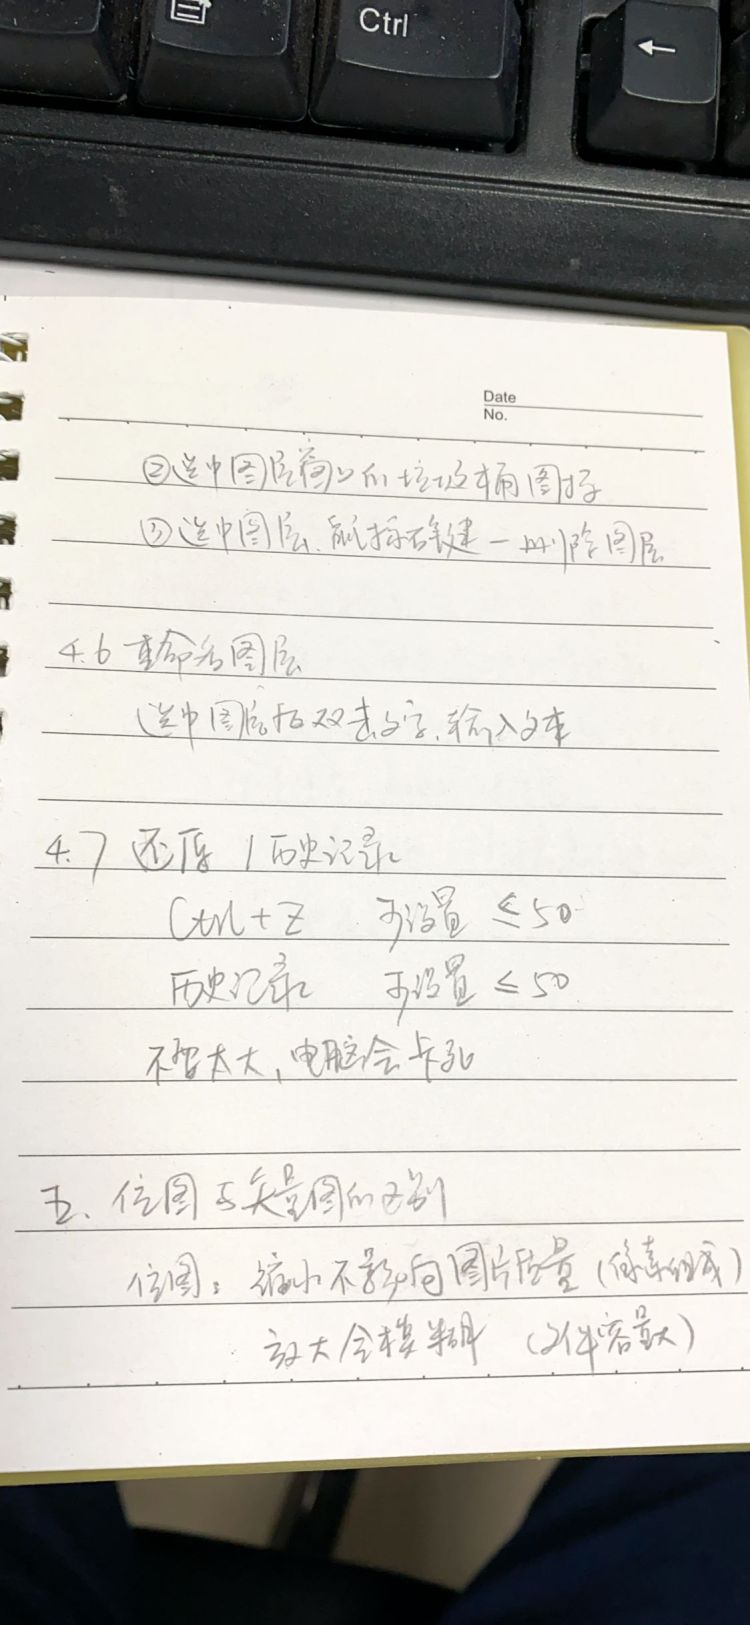 Ctrl
←
Date
No.
②选中图层窗口的垃圾桶图标
③选中图层、鼠标右键一删除图层
4.6 重命名图层
选中图层后双击文字、输入文本
4.7 还原/历史记录
Ctrl+Z 可设置 ≤50
历史记录 可设置 ≤50
不能太大,电脑会卡死
五、位图与矢量图的区别
位图: 缩小不影响图片质量(像素组成)
放大会模糊 (文件容量大)